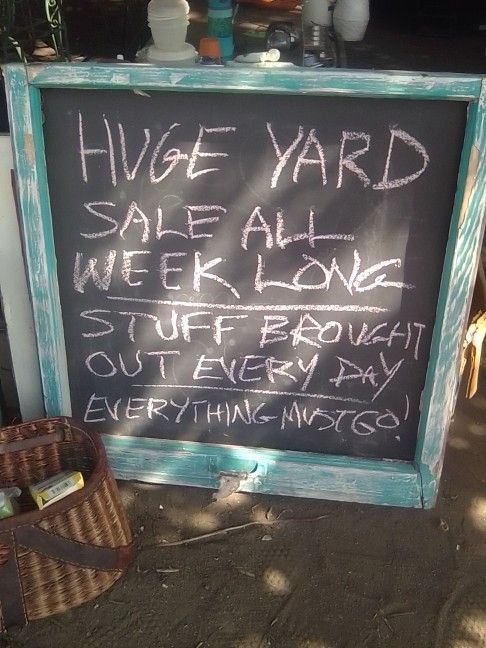 HUGE YARD
SALE ALL
WEEK LONG
STUFF BROUGHT
OUT EVERY DAY
EVERYTHING MUST GO!